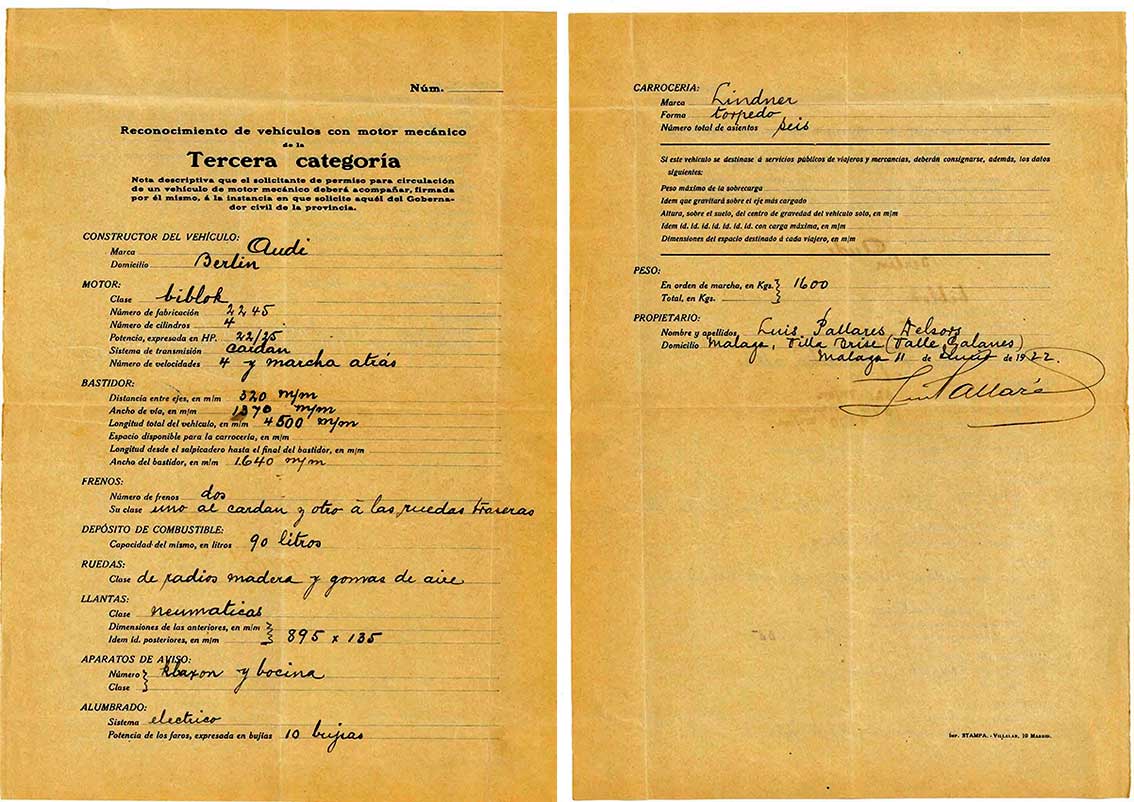 Núm.
Reconocimiento de vehículos con motor mecánico
de la
Tercera categoría
Nota descriptiva que el solicitante de permiso para circulación
de un vehículo de motor mecánico deberá acompañar, firmada
por él mismo, á la instancia en que solicite aquél del Goberna-
dor civil de la provincia.
CONSTRUCTOR DEL VEHÍCULO:
Marca Audi
Domicilio Berlin
MOTOR:
Clase biblok
Número de fabricación 2245
Número de cilindros 4
Potencia, expresada en HP. 22/25
Sistema de transmisión cardan
Número de velocidades 4 y marcha atrás
BASTIDOR:
Distancia entre ejes, en m/m 320 m/m
Ancho de vía, en m/m 1370 m/m
Longitud total del vehículo, en m/m 4500 m/m
Espacio disponible para la carrocería, en m/m
Longitud desde el salpicadero hasta el final del bastidor, en m/m
Ancho del bastidor, en m/m 1.640 m/m
FRENOS:
Número de frenos dos
Su clase uno al cardan y otro à las ruedas traseras
DEPÓSITO DE COMBUSTIBLE:
Capacidad del mismo, en litros 90 litros
RUEDAS:
Clase de radios madera y gomas de aire
LLANTAS:
Clase neumaticas
Dimensiones de las anteriores, en m/m
Idem íd. posteriores, en m/m 895 x 135
APARATOS DE AVISO:
Número klaxon y bocina
Clase
ALUMBRADO:
Sistema electrico
Potencia de los faros, expresada en bujías 10 bujias
CARROCERIA:
Marca Lindner
Forma torpedo
Número total de asientos seis
Si este vehículo se destinase á servicios públicos de viajeros y mercancías, deberán consignarse, además, los datos
siguientes:
Peso máximo de la sobrecarga
Idem que gravitará sobre el eje más cargado
Altura, sobre el suelo, del centro de gravedad del vehículo solo, en m/m
Idem íd. íd. íd. íd. íd. íd. con carga máxima, en m/m
Dimensiones del espacio destinado á cada viajero, en m/m
PESO:
En orden de marcha, en Kgs. 1600
Total, en Kgs.
PROPIETARIO:
Nombre y apellidos Luis Pallares Delsors
Domicilio Malaga, Villa (Valle Galanes)
Malaga 11 de de 1922.
Luis Pallarés
Imp. STAMPA.-Villalar, 10 Madrid.